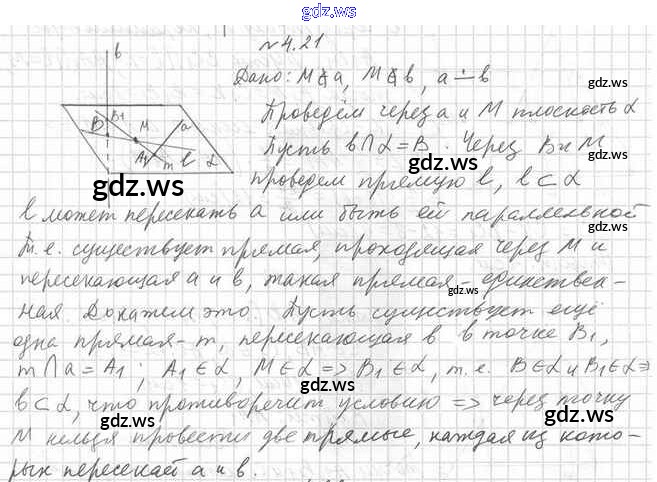 gdz.ws
№4.21
Дано: M∉a, M∉b, a∸b
gdz.ws
Проведём через a и M плоскость α
Пусть b∩α=B. Через B и M
gdz.ws
gdz.ws
проведем прямую l, l⊂α
b B B₁ M a A₁ m l α
l может пересекать a или быть ей параллельной
Т.е. существует прямая, проходящая через M и
пересекающая a и b, такая прямая - единствен-
gdz.ws
ная. Докажем это. Пусть существует ещё
одна прямая - m, пересекающая b в точке B₁,
m∩a=A₁; A₁∈α, M∈α => B₁∈α, т.е. B∈α и B₁∈α =>
b⊂α, что противоречит условию => через точку
gdz.ws
gdz.ws
M нельзя провести две прямые, каждая из кото-
рых пересекает a и b.